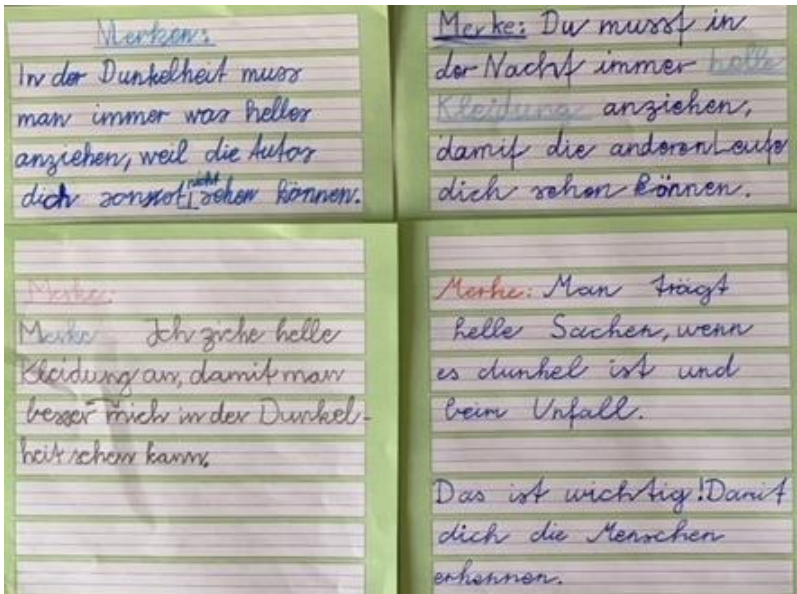 Merken:
In der Dunkelheit muss
man immer was helles
anziehen, weil die Autos
dich sonst nicht sehen können.
Merke: Du musst in
der Nacht immer helle
Kleidung anziehen,
damit die anderen Leute
dich sehen können.
Merke:
Merke Ich ziehe helle
Kleidung an, damit man
besser mich in der Dunkel-
heit sehen kann.
Merke: Man trägt
helle Sachen, wenn
es dunkel ist und
beim Unfall.
Das ist wichtig! Damit
dich die Menschen
erkennen.